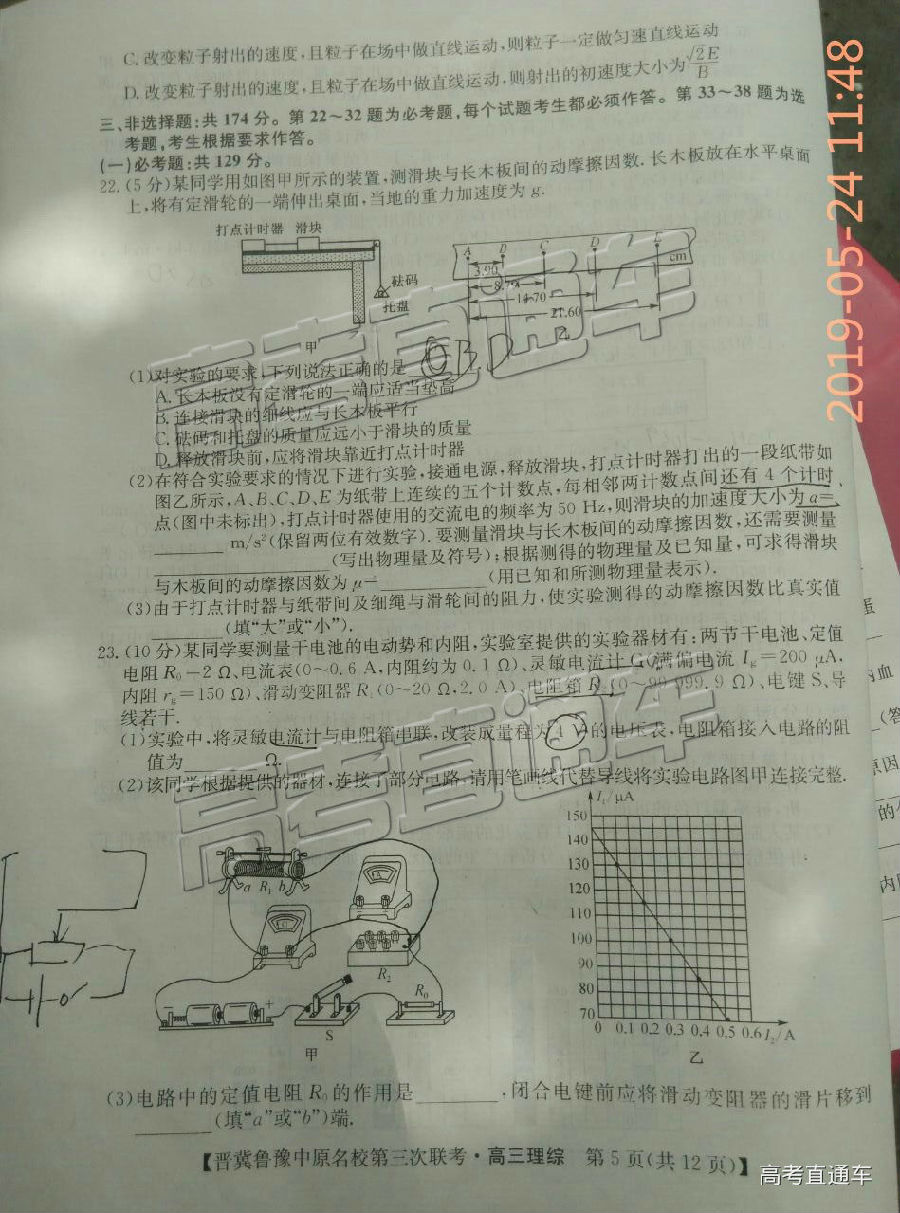 C. 改变粒子射出的速度,且粒子在场中做直线运动,则粒子一定做匀速直线运动
D. 改变粒子射出的速度,且粒子在场中做直线运动,则射出的初速度大小为√2E/B
三、非选择题:共 174 分。第 22～32 题为必考题,每个试题考生都必须作答。第 33～38 题为选
考题,考生根据要求作答。
(一)必考题:共 129 分。
22. (5 分)某同学用如图甲所示的装置,测滑块与长木板间的动摩擦因数. 长木板放在水平桌面
上,将有定滑轮的一端伸出桌面,当地的重力加速度为 g.
打点计时器 滑块
砝码
托盘
甲
A B C D E
cm
3.90
8.79
14.70
21.60
乙
(1)对实验的要求,下列说法正确的是
BD
A. 长木板没有定滑轮的一端应适当垫高
B. 连接滑块的细线应与长木板平行
C. 砝码和托盘的质量应远小于滑块的质量
D. 释放滑块前,应将滑块靠近打点计时器
(2)在符合实验要求的情况下进行实验,接通电源,释放滑块,打点计时器打出的一段纸带如
图乙所示,A、B、C、D、E 为纸带上连续的五个计数点,每相邻两计数点间还有 4 个计时
点(图中未标出),打点计时器使用的交流电的频率为 50 Hz,则滑块的加速度大小为 a=
________ m/s²(保留两位有效数字). 要测量滑块与长木板间的动摩擦因数,还需要测量
________________(写出物理量及符号);根据测得的物理量及已知量,可求得滑块
与木板间的动摩擦因数为 μ=__________(用已知和所测物理量表示).
(3)由于打点计时器与纸带间及细绳与滑轮间的阻力,使实验测得的动摩擦因数比真实值
________(填“大”或“小”).
23. (10 分)某同学要测量干电池的电动势和内阻,实验室提供的实验器材有:两节干电池、定值
电阻 R₀=2 Ω、电流表(0～0.6 A,内阻约为 0.1 Ω)、灵敏电流计 G(满偏电流 Ig=200 μA,
内阻 rg=150 Ω)、滑动变阻器 R₁(0～20 Ω,2.0 A)、电阻箱 R₂(0～99 999.9 Ω)、电键 S、导
线若干.
(1)实验中,将灵敏电流计与电阻箱串联,改装成量程为 4 V 的电压表,电阻箱接入电路的阻
值为________Ω.
(2)该同学根据提供的器材,连接了部分电路,请用笔画线代替导线将实验电路图甲连接完整.
a R₁ b
R₂
R₀
S
- +
甲
I₁/μA
150
140
130
120
110
100
90
80
70
0 0.1 0.2 0.3 0.4 0.5 0.6 I₂/A
乙
(3)电路中的定值电阻 R₀ 的作用是________. 闭合电键前应将滑动变阻器的滑片移到
________(填“a”或“b”)端.
【晋冀鲁豫中原名校第三次联考·高三理综 第 5 页(共 12 页)】
高考直通车
高考直通车
高考直通车
2019-05-24 11:48